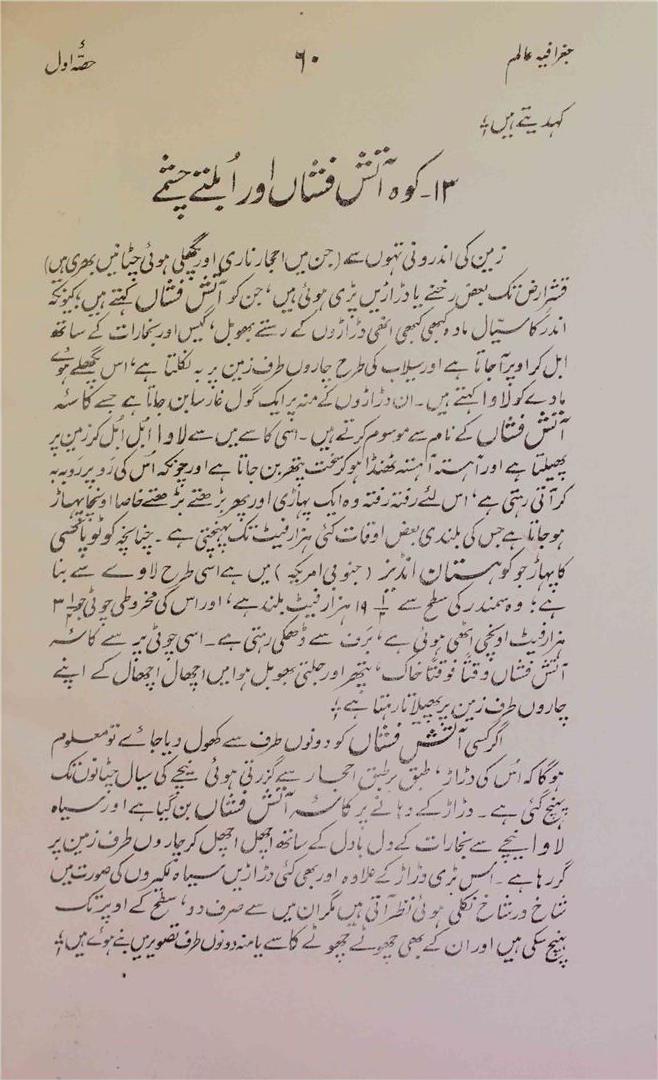 جغرافیہ عالم ۶۰ حصّہ اول
کہدیتے ہیں ؛
۱۳۔ کوہ آتش فشاں اور اُبلتے چشمے
زمین کی اندرونی تہوں سے (جن میں احجار ناری اور پگھلی ہوئی چٹانیں بھری ہیں)
قشر ارض تک بعض رخنے یا دراڑیں پڑی ہوئی ہیں، جن کو آتش فشاں کہتے ہیں، کیونکہ
اندر کا سیّال مادہ کبھی کبھی انھی دراڑوں کے رستے بھوبل، گیس اور بخارات کے ساتھ
ابل کر اوپر آجاتا ہے اور سیلاب کی طرح چاروں طرف زمین پر بہ نکلتا ہے، اس پگھلے ہوئے
مادے کو لاوا کہتے ہیں۔ ان دراڑوں کے منہ پر ایک گول غار سا بن جاتا ہے جسے کاسۂ
آتش فشاں کے نام سے موسوم کرتے ہیں۔ اسی کاسے میں سے لاوا اُبل اُبل کر زمین پر
پھیلتا ہے اور آہستہ آہستہ ٹھنڈا ہو کر سخت پتھر بن جاتا ہے اور چونکہ اُس کی رَو پر رَو بہ بہ
کر آتی رہتی ہے، اس لئے رفتہ رفتہ وہ ایک پہاڑی اور پھر بڑھتے بڑھتے خاصا اونچا پہاڑ
ہو جاتا ہے جس کی بلندی بعض اوقات کئی ہزار فیٹ تک پہنچتی ہے۔ چنانچہ کوٹوپاکسی
کا پہاڑ جو کوہستان انڈیز (جنوبی امریکہ) میں ہے اسی طرح لاوے سے بنا
ہے؛ وہ سمندر کی سطح سے ۱۹ ½ ہزار فیٹ بلند ہے، اور اس کی مخروطی چوٹی جو ۳ ½
ہزار فیٹ اونچی اٹھی ہوئی ہے، برف سے ڈھکی رہتی ہے۔ اسی چوٹی پر سے کاسۂ
آتش فشاں وقتاً فوقتاً خاک، پتھر اور جلتی بھوبل ہوا میں اچھال اچھال کے اپنے
چاروں طرف زمین پر پھیلاتا رہتا ہے ؛
اگر کسی آتش فشاں کو دونوں طرف سے کھول دیا جائے تو معلوم
ہوگا کہ اُس کی دراڑ، طبق بر طبق احجار سے گزرتی ہوئی نیچے کی سیال چٹانوں تک
پہنچ گئی ہے۔ دراڑ کے دہانے پر کاسۂ آتش فشاں بن گیا ہے اور سیاہ
لاوا نیچے سے بخارات کے دَل بادل کے ساتھ اچھل اچھل کر چاروں طرف زمین پر
گر رہا ہے۔ اس بڑی دراڑ کے علاوہ اور بھی کئی دراڑیں سیاہ لکیروں کی صورت میں
شاخ در شاخ نکلی ہوئی نظر آتی ہیں مگر ان میں سے صرف دو، سطح کے اوپر تک
پہنچ سکی ہیں اور ان کے بھی چھوٹے چھوٹے کاسے یا منہ دونوں طرف تصویر میں بنے ہوئے ہیں ؛